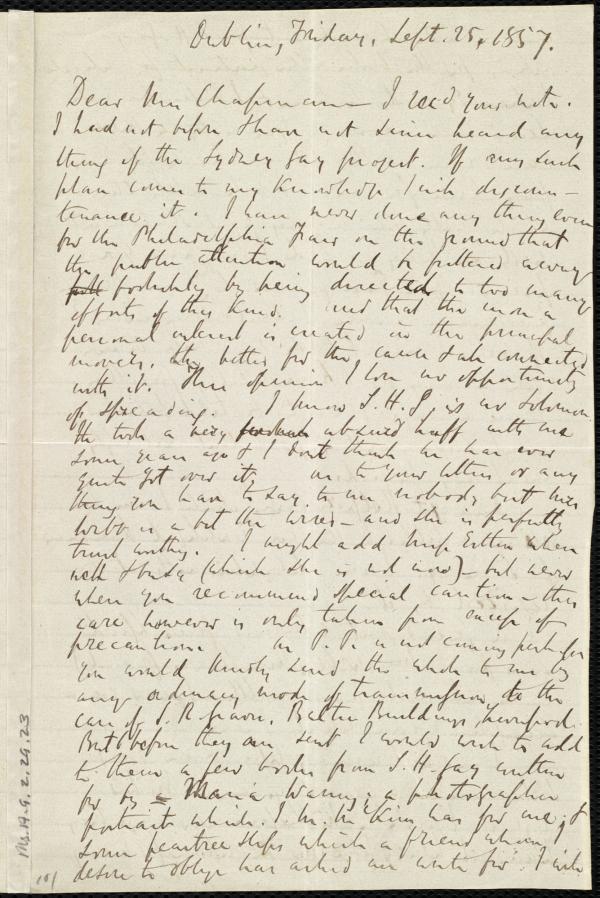 Dublin, Friday, Sept. 25, 1857.
Dear Mrs Chapman — I recd your note.
I had not before & have not since heard any
thing of the Sydney Gay project. If any such
plan comes to my knowledge I will discoun-
tenance it. I have never done any thing even
for the Philadelphia Fair on the ground that
the public attention would be frittered away
by being directed to too many
efforts of this kind. and that the more a
personal interest is created in the principal
movers, the better for the cause & all connected
with it. This opinion I lose no opportunity
of spreading. I know S. H. G. is no Solomon
He took a very absurd huff with me
some years ago & I don't think he has ever
quite got over it. as to your letters or any
thing you have to say to me nobody but Miss
Webb is a bit the wiser — and she is perfectly
trust worthy. I might add Miss Estlin when
with us (which she is not now) — but never
when you recommend special caution — this
care however is only taken from excess of
precaution. as P. P. is not coming perhaps
you would kindly send the whole to me by
any ordinary mode of transmission, to the
care of J. R. Baltic Buildings, Liverpool.
But before they are sent I would wish to add
to them a few books from S. H. Gay written
for by Maria Waring; a photographic
portrait which J. M. McKim has for me; &
some peartree slips which a friend whom I
desire to oblige has asked me write for. I wish
Ms.A.9.2.29.23